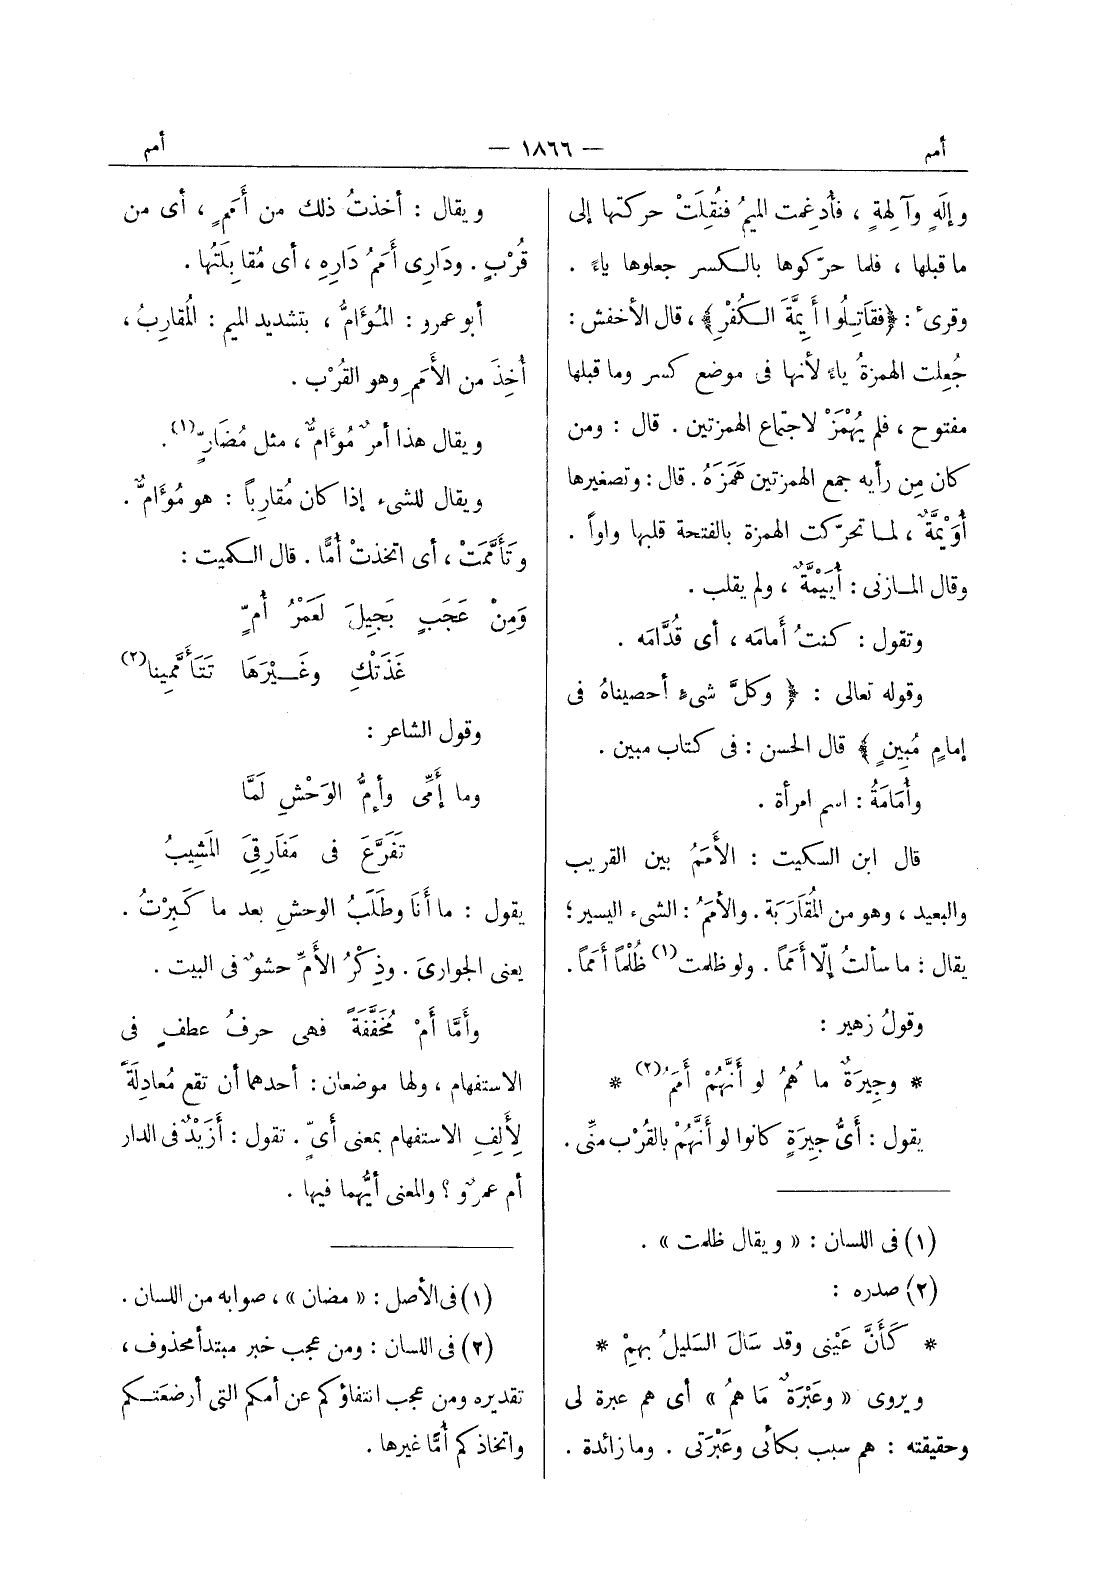 أمم — ١٨٦٦ — أمم
وإلَهٍ وآلِهةٍ ، فأُدغِمت الميمُ فنُقِلَتْ حركتها إلى
ما قبلها ، فلما حرّكوها بالكسر جعلوها ياءً .
وقرىء : ﴿فقَاتِلُوا أَيِمَّةَ الكُفْرِ﴾ ، قال الأخفش :
جُعِلت الهمزةُ ياءً لأنها فى موضع كسر وما قبلها
مفتوح ، فلم يُهْمَزْ لاجتماع الهمزتين . قال : ومن
كان مِن رأيه جمع الهمزتين هَمَزَهُ . قال : وتصغيرها
أُوَيْمَّةٌ ، لما تحرّكت الهمزة بالفتحة قلبها واواً .
وقال المازنى : أُيَيْمَّةٌ ، ولم يقلب .
وتقول : كنتُ أَمامَه ، أى قُدَّامَه .
وقوله تعالى : ﴿ وكلَّ شىءٍ أحصيناهُ فى
إمامٍ مُبِينٍ ﴾ قال الحسن : فى كتاب مبين .
وأُمَامَةُ : اسم امرأة .
قال ابن السكيت : الأَمَمُ بين القريب
والبعيد ، وهو من المُقَارَبَة . والأمَمُ : الشىء اليسير ؛
يقال : ما سألتُ إلّا أَمَماً . ولو ظلمت(١) ظُلْماً أَمَماً .
وقولُ زهير :
* وجِيرَةٌ ما هُمُ لو أَنَّهُمْ أَمَمُ(٢) *
يقول : أىُّ جِيرَةٍ كانوا لو أَنَّهُمْ بالقُرْب منِّى .
(١) فى اللسان : « ويقال ظلمت » .
(٢) صدره :
* كَأَنَّ عَيْنِى وقد سَالَ السَلِيلُ بهِمْ *
ويروى « وعَبْرَةٌ مَا همُ » أى هم عبرة لى
وحقيقته : هم سبب بكأئى وعَبْرَتى . وما زائدة .
ويقال : أخذتُ ذلك من أَمَمٍ ، أى من
قُرْبٍ . ودَارِى أَمَمُ دَارِهِ ، أى مُقابِلَتُها .
أبو عمرو : المُؤَامُّ ، بتشديد الميم : المُقارِبُ ،
أُخِذَ من الأَمَمِ وهو القُرْب .
ويقال هذا أمرٌ مُؤَامٌّ ، مثل مُضَارٍّ(١) .
ويقال للشىء إذا كان مُقارِباً : هو مُؤَامٌّ .
وتَأَمَّمَتْ ، أى اتخذتْ أُمًّا . قال الكميت :
وَمِنْ عَجَبٍ بَجِيلَ لَعَمْرُ أُمٍّ
غَذَتْكِ وغَيْرَهَا تَتَأَمَّمِينا(٢)
وقول الشاعر :
وما إمِّى وأمُّ الوَحْشِ لَمَّا
تَفَرَّعَ فى مَفَارِقِىَ المَشِيبُ
يقول : ما أَنَا وطَلَبُ الوحشِ بعد ما كَبِرْتُ .
يعنى الجوارىَ . وذِكْرُ الأُمِّ حشوٌ فى البيت .
وأَمَّا أَمْ مُخَفَّفَةً فهى حرفُ عطفٍ فى
الاستفهام ، ولها موضعان : أحدهما أن تقع مُعادِلَةً
لِأَلِفِ الاستفهام بمعنى أىٍّ . تقول : أَزَيْدٌ فى الدار
أم عمرٌو ؟ والمعنى أيُّهما فيها .
(١) فى الأصل : « مضان » ، صوابه من اللسان .
(٢) فى اللسان : ومن عجب خبر مبتدأ محذوف ،
تقديره ومن عجب انتفاؤكم عن أمكم التى أرضعتكم
واتخاذكم أمًّا غيرها .